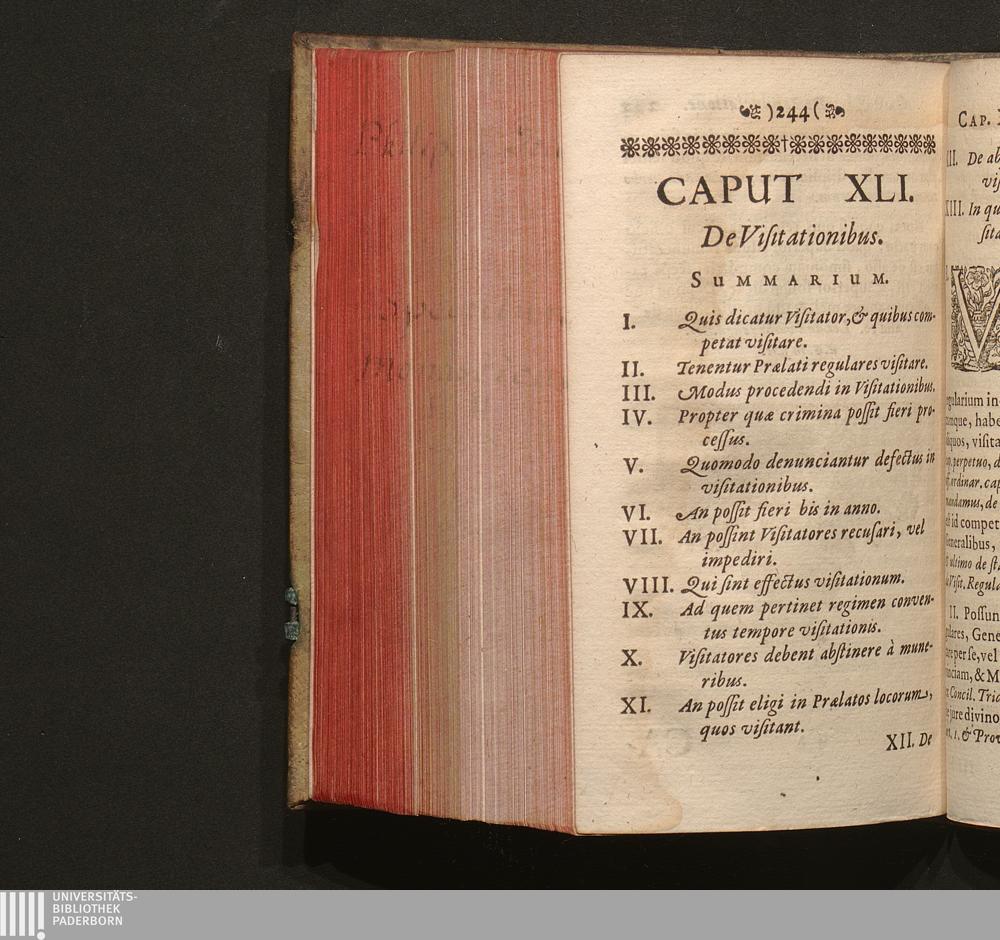 )244(
CAPUT XLI.
De Viſitationibus.
SUMMARIUM.
I. Quis dicatur Viſitator, & quibus com-
petat viſitare.
II. Tenentur Prælati regulares viſitare.
III. Modus procedendi in Viſitationibus.
IV. Propter quæ crimina poſſit fieri pro-
ceſſus.
V. Quomodo denunciantur defectus in
viſitationibus.
VI. An poſſit fieri bis in anno.
VII. An poſſint Viſitatores recuſari, vel
impediri.
VIII. Qui ſint effectus viſitationum.
IX. Ad quem pertinet regimen conven-
tus tempore viſitationis.
X. Viſitatores debent abſtinere à mune-
ribus.
XI. An poſſit eligi in Prælatos locorum,
quos viſitant.
XII. De
CAP.
De ab
viſ
XIII. In qu
ſita
W
gularium in-
mque, habe
liquos, viſita
perpetuo, d
ordinar. cap
mandamus, de
id compet
neralibus,
ultimo de ſt.
Viſit. Regula
II. Poſſun
gulares, Gene
re per ſe, vel
nciam, & M
Concil. Trid
jure divino
1. & Prov
UNIVERSITÄTS-
BIBLIOTHEK
PADERBORN